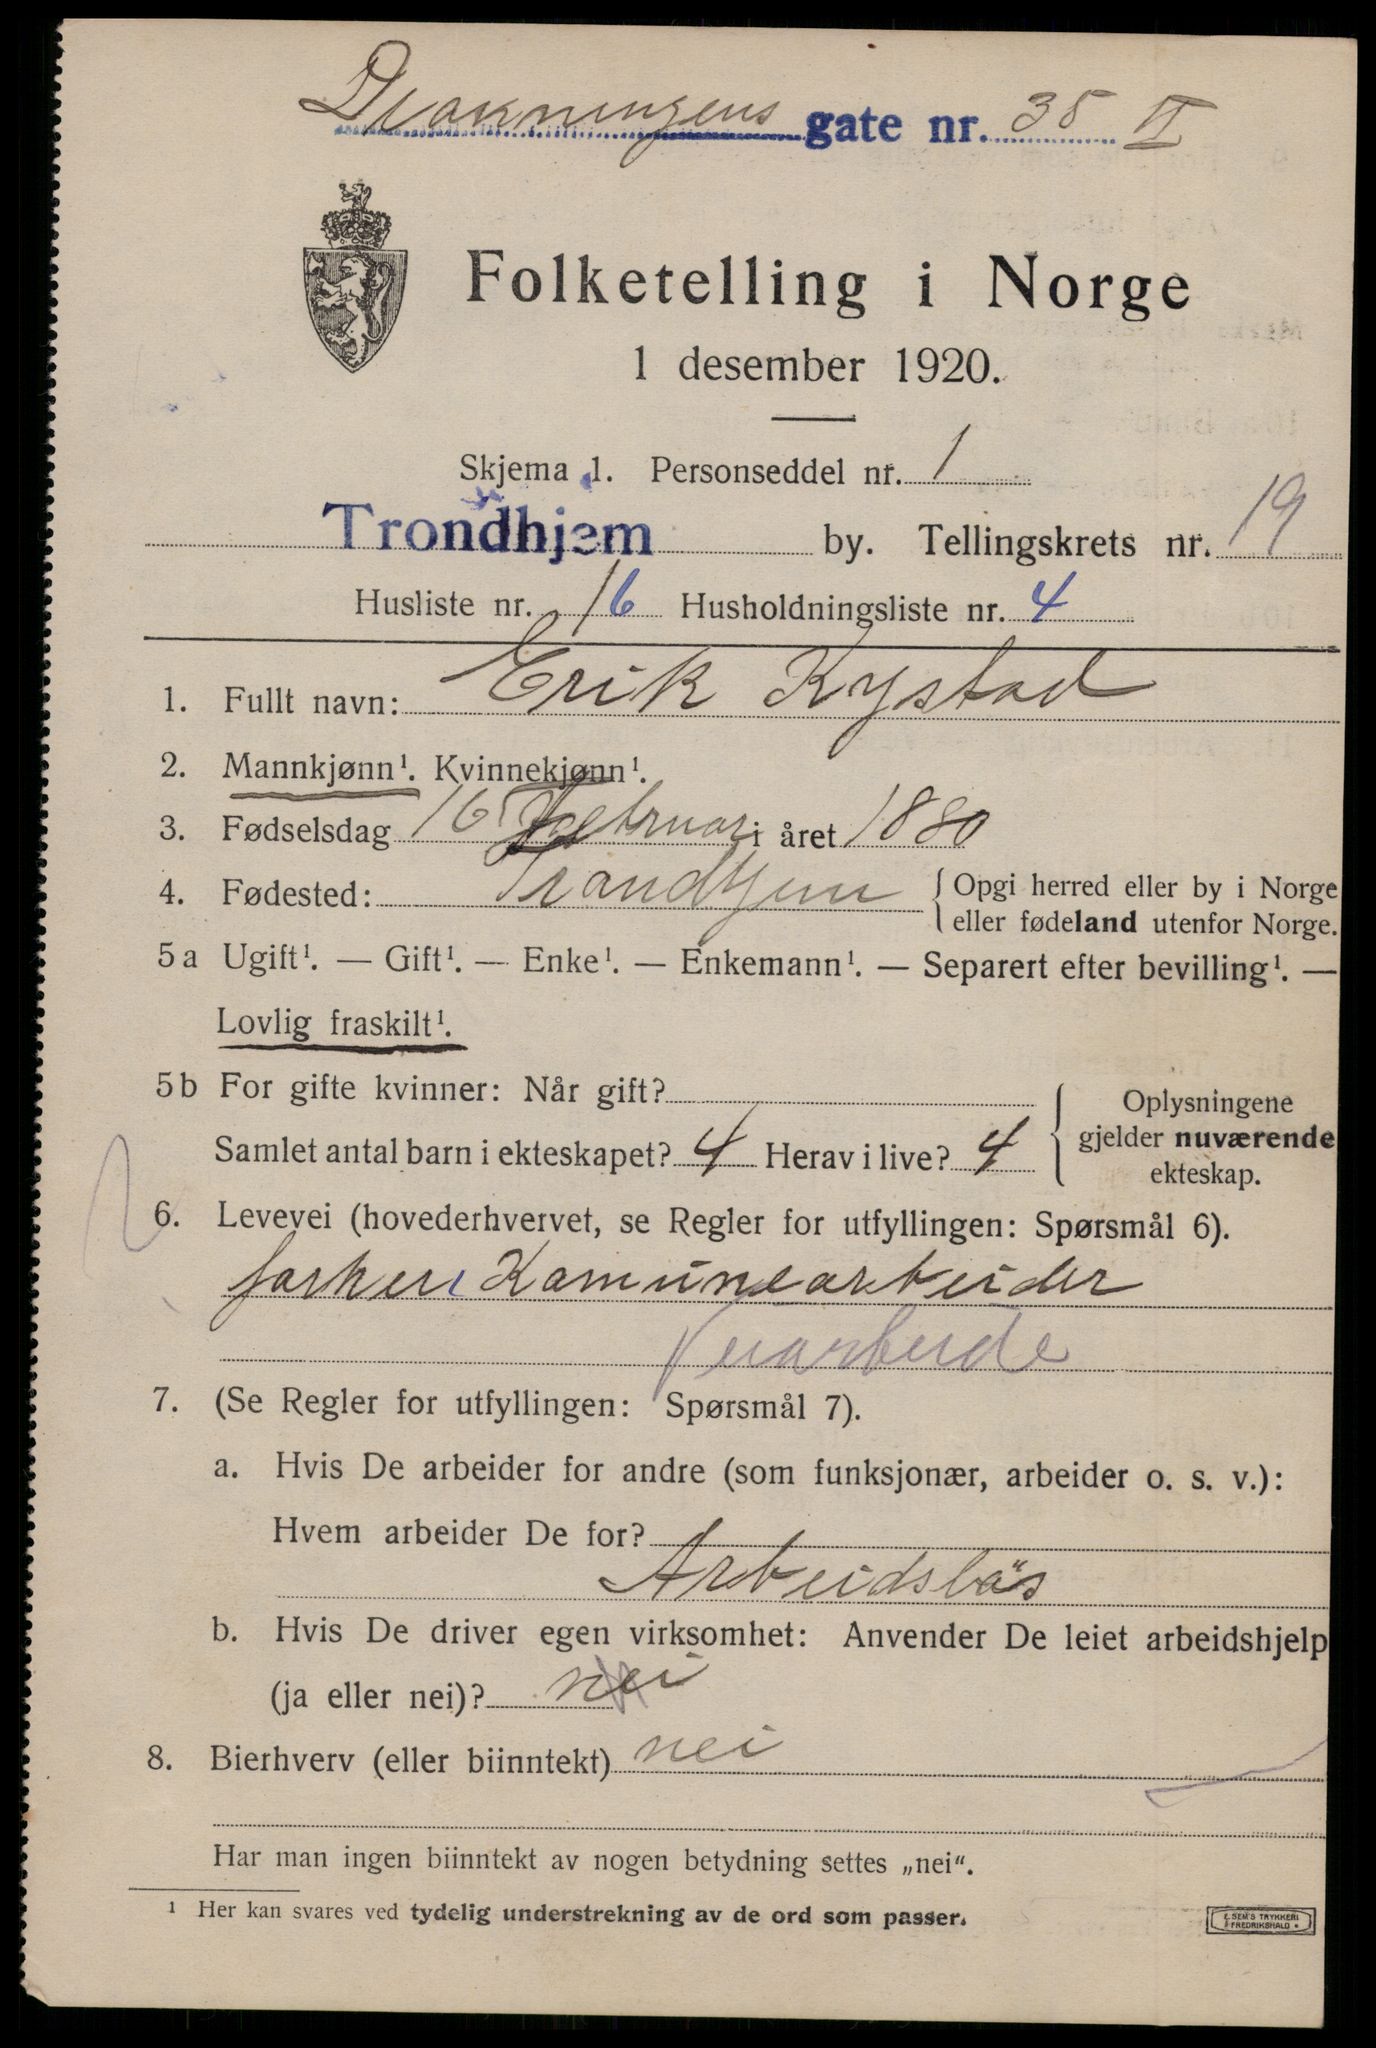 Dronningens gate nr. 35 II
Folketelling i Norge
1 desember 1920.
Skjema 1. Personseddel nr. 1
Trondhjem by. Tellingskrets nr. 19
Husliste nr. 16 Husholdningsliste nr. 4
1. Fullt navn: Erik Kystad
2. Mannkjønn¹. Kvinnekjønn¹.
3. Fødselsdag 16 Februar i året 1880
4. Fødested: Trondhjem { Opgi herred eller by i Norge
eller fødeland utenfor Norge.
5 a Ugift¹. — Gift¹. — Enke¹. — Enkemann¹. — Separert efter bevilling¹. —
Lovlig fraskilt¹.
5 b For gifte kvinner: Når gift?
Samlet antal barn i ekteskapet? 4 Herav i live? 4
Oplysningene
gjelder nuværende
ekteskap.
6. Levevei (hovederhvervet, se Regler for utfyllingen: Spørsmål 6).
Komunearbeider
Veiarbeide
7. (Se Regler for utfyllingen: Spørsmål 7).
a. Hvis De arbeider for andre (som funksjonær, arbeider o. s. v.):
Hvem arbeider De for?
Arbeidslös
b. Hvis De driver egen virksomhet: Anvender De leiet arbeidshjelp
(ja eller nei)? nei
8. Bierhverv (eller biinntekt) nei
Har man ingen biinntekt av nogen betydning settes „nei".
¹ Her kan svares ved tydelig understrekning av de ord som passer.
E. SEM'S TRYKKERI
FREDRIKSHALD